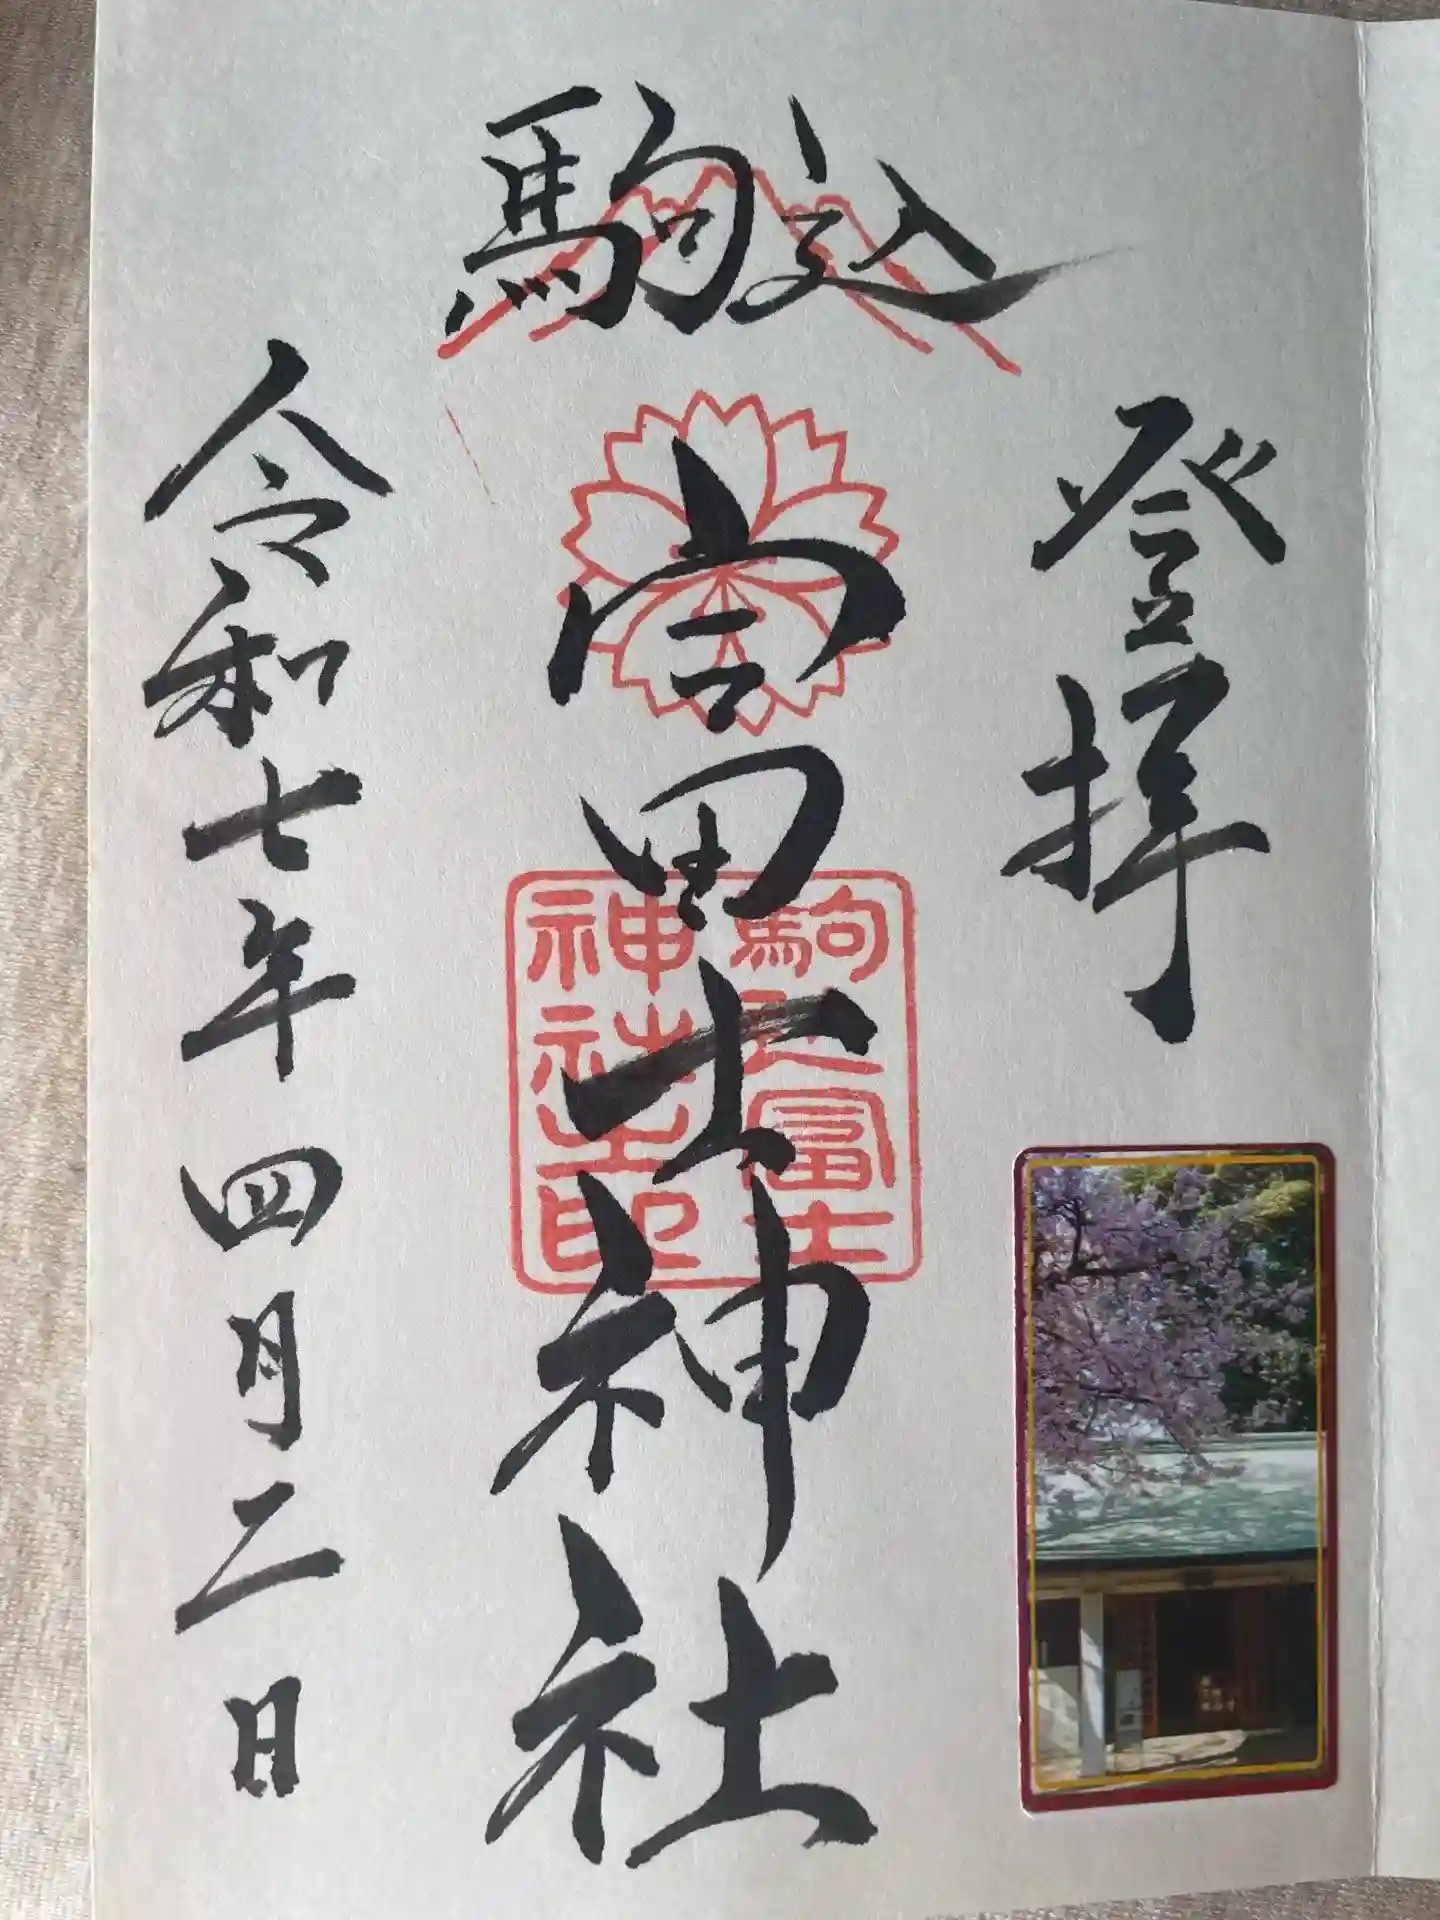 登拝
駒込
富士神社
駒込富士
神社之印
令和七年四月二日